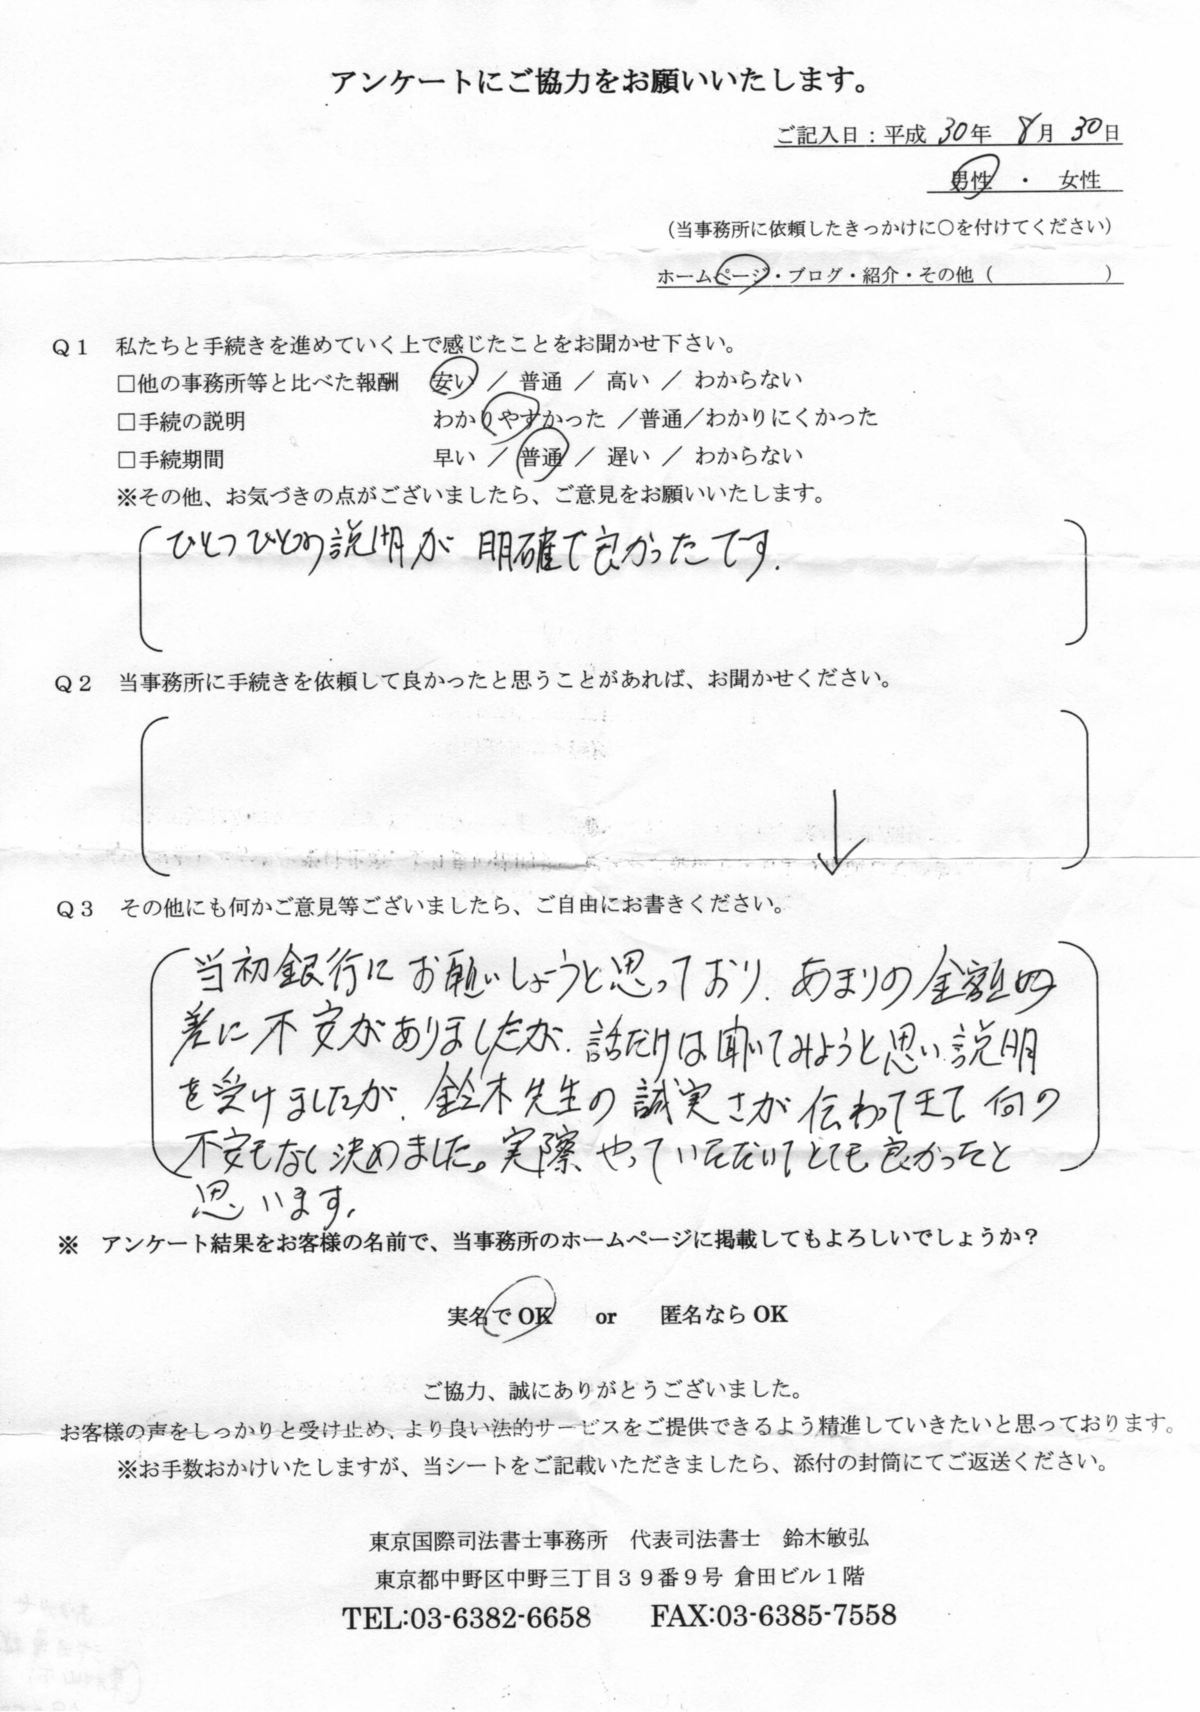 アンケートにご協力をお願いいたします。
ご記入日：平成 30年 8月 30日
男性 ・ 女性
（当事務所に依頼したきっかけに〇を付けてください）
ホームページ・ブログ・紹介・その他（ ）
Q1 私たちと手続きを進めていく上で感じたことをお聞かせ下さい。
□他の事務所等と比べた報酬 安い ／ 普通 ／ 高い ／ わからない
□手続の説明 わかりやすかった ／普通／わかりにくかった
□手続期間 早い ／ 普通 ／ 遅い ／ わからない
※その他、お気づきの点がございましたら、ご意見をお願いいたします。
ひとつひとつの説明が 明確で良かったです.
Q2 当事務所に手続きを依頼して良かったと思うことがあれば、お聞かせください。
↓
Q3 その他にも何かご意見等ございましたら、ご自由にお書きください。
当初銀行にお願いしようと思っており、あまりの金額の
差に不安がありましたが、話だけは聞いてみようと思い説明
を受けましたが、鈴木先生の誠実さが伝わってきて何の
不安もなし決めました。実際やっていただいてとても良かったと
思います。
※ アンケート結果をお客様の名前で、当事務所のホームページに掲載してもよろしいでしょうか？
実名でOK or 匿名ならOK
ご協力、誠にありがとうございました。
お客様の声をしっかりと受け止め、より良い法的サービスをご提供できるよう精進していきたいと思っております。
※お手数おかけいたしますが、当シートをご記載いただきましたら、添付の封筒にてご返送ください。
東京国際司法書士事務所 代表司法書士 鈴木敏弘
東京都中野区中野三丁目３９番９号 倉田ビル１階
TEL:03-6382-6658 FAX:03-6385-7558